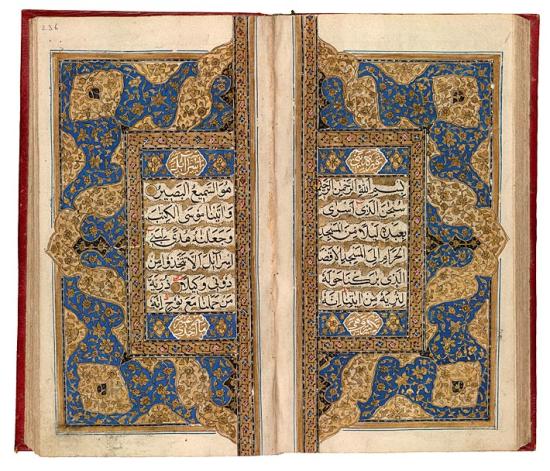 سورة بني
بِسْمِ اللهِ الرَّحْمٰنِ الرَّحِيمِ
سُبْحٰنَ الَّذِي اَسْرٰى
بِعَبْدِهِ لَيْلًا مِنَ الْمَسْجِدِ
الْحَرَامِ اِلَى الْمَسْجِدِ الْاَقْصَا
الَّذِي بٰرَكْنَا حَوْلَهُ
لِنُرِيَهُ مِنْ اٰيٰتِنَا اِنَّهُ
اسرائيل
هُوَ السَّمِيعُ الْبَصِيرُ
وَاٰتَيْنَا مُوسَى الْكِتٰبَ
وَجَعَلْنٰهُ هُدًى لِبَنِي
اِسْرَائِلَ اَلَّا تَتَّخِذُوا مِنْ
دُونِي وَكِيلًا ذُرِّيَّةَ
مَنْ حَمَلْنَا مَعَ نُوحٍ اِنَّهُ